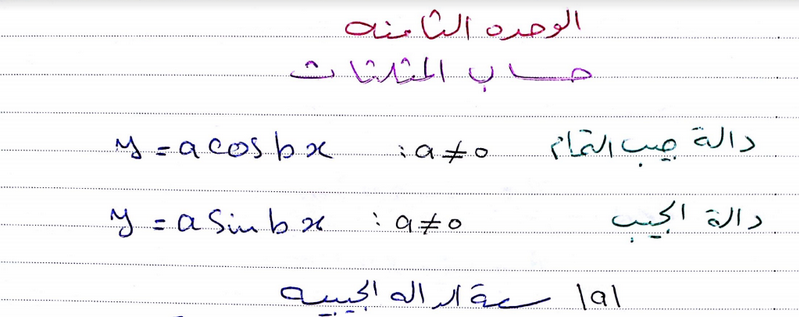 الوحده الثامنه
حساب المثلثات
دالة جيب التمام y = a cos bx : a ≠ 0
دالة الجيب y = a sin bx : a ≠ 0
|a| سعة الداله الجيبيه